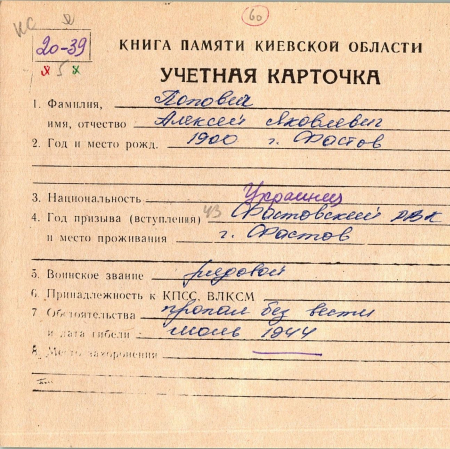 60
КС Я
20-39
я 5 х
КНИГА ПАМЯТИ КИЕВСКОЙ ОБЛАСТИ
УЧЕТНАЯ КАРТОЧКА
1. Фамилия, Поповей
имя, отчество Алексей Яковлевич
2. Год и место рожд. 1900 г. Фастов
3. Национальность Украинец
4. Год призыва (вступления) 43 Фастовский РВК
и место проживания г. Фастов
5. Воинское звание рядовой
6. Принадлежность к КПСС, ВЛКСМ
7. Обстоятельства пропал без вести
и дата гибели июль 1944
8. Место захоронения